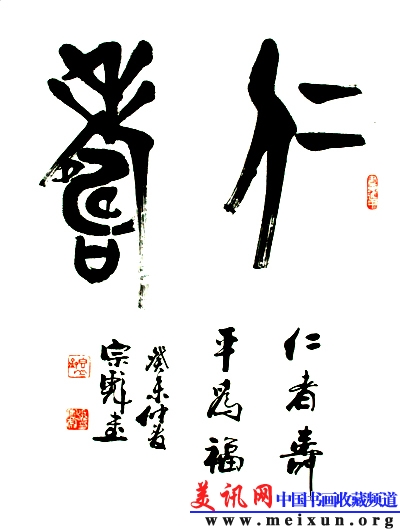 仁壽
仁者壽
平為福
癸未仲春
宗
書
美讯网 中国书画收藏频道
www.meixun.org